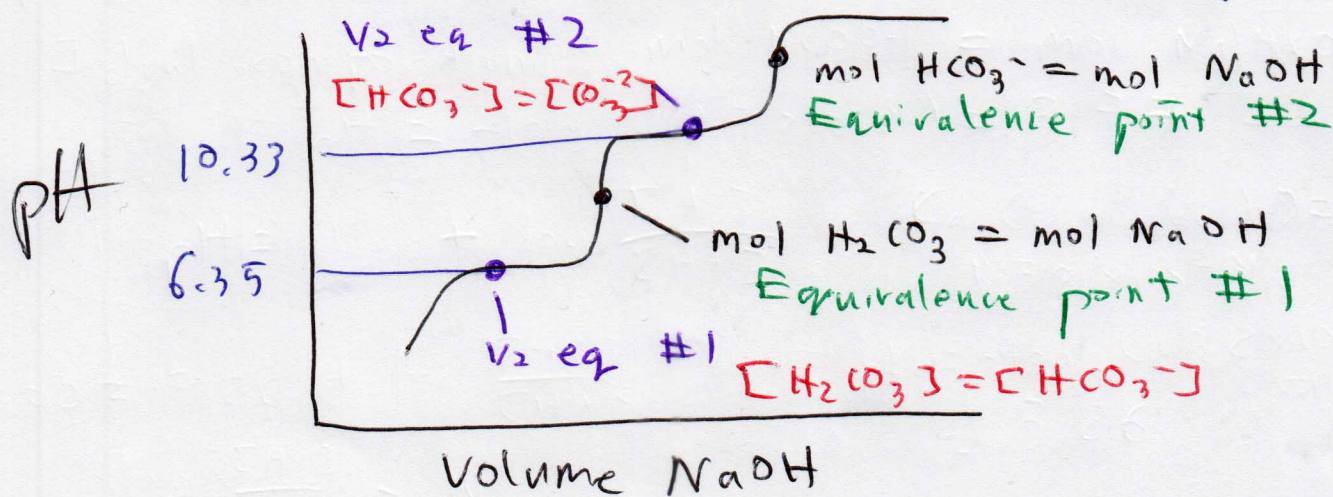 1/2 eq #2
[HCO₃⁻] = [CO₃⁻²]
mol HCO₃⁻ = mol NaOH
Equivalence point #2
pH
10.33
mol H₂CO₃ = mol NaOH
Equivalence point #1
6.35
1/2 eq #1
[H₂CO₃] = [HCO₃⁻]
Volume NaOH